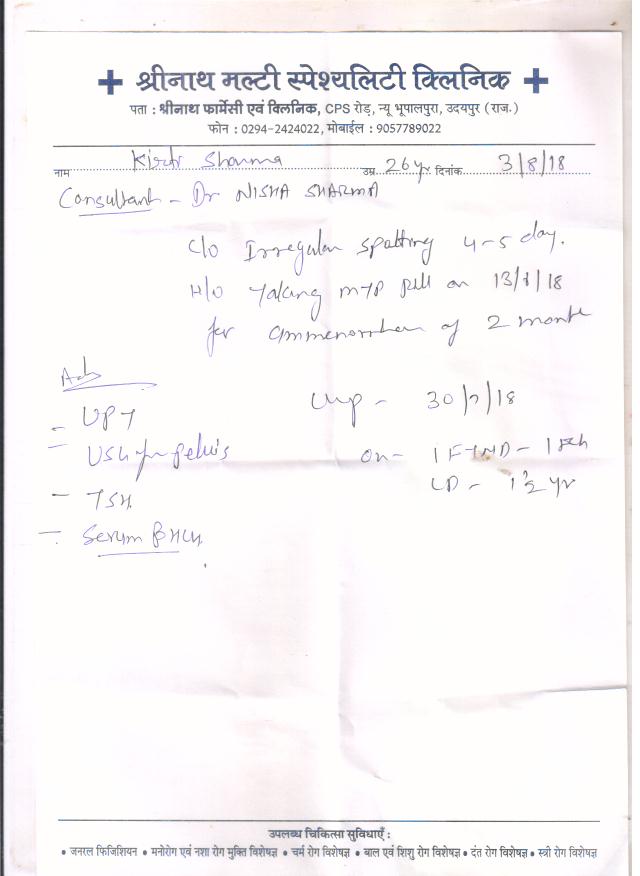 + श्रीनाथ मल्टी स्पेश्यलिटी क्लिनिक +
पता : श्रीनाथ फार्मेसी एवं क्लिनिक, CPS रोड़, न्यू भूपालपुरा, उदयपुर (राज.)
फोन : 0294-2424022, मोबाईल : 9057789022
नाम Sharma उम्र. 26 yr दिनांक 3/8/18
Consultant - Dr NISHA SHARMA
C/O Irregular spotting 4-5 day.
H/O Taking MTP pill on /18
for ammenorrhea of 2 month
Adv
- UPT
LMP - 30/7/18
- USG for pelvis
OH - 1 FTND -
LD - 1 1/2 yr
- TSH
- Serum β HCG
उपलब्ध चिकित्सा सुविधाएँ :
• जनरल फिजिशियन • मनोरोग एवं नशा रोग मुक्ति विशेषज्ञ • चर्म रोग विशेषज्ञ • बाल एवं शिशु रोग विशेषज्ञ • दंत रोग विशेषज्ञ • स्त्री रोग विशेषज्ञ